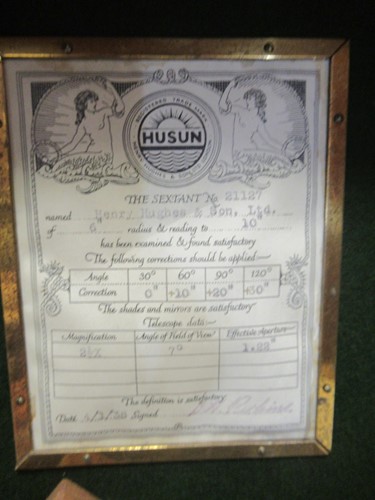 REGISTERED TRADE MARK
HUSUN
HENRY HUGHES & SON LTD
THE SEXTANT № 21127
named Henry Hughes & Son, Ltd.
of 6" radius & reading to 10"
has been examined & found satisfactory
The following corrections should be applied:-
Angle 30° 60° 90° 120°
Correction 0" +10" +20" +30"
The shades and mirrors are satisfactory
Telescope data:-
Magnification Angle of Field of View Effective Aperture
2½X 7° 1.22"
The definition is satisfactory
Date Signed